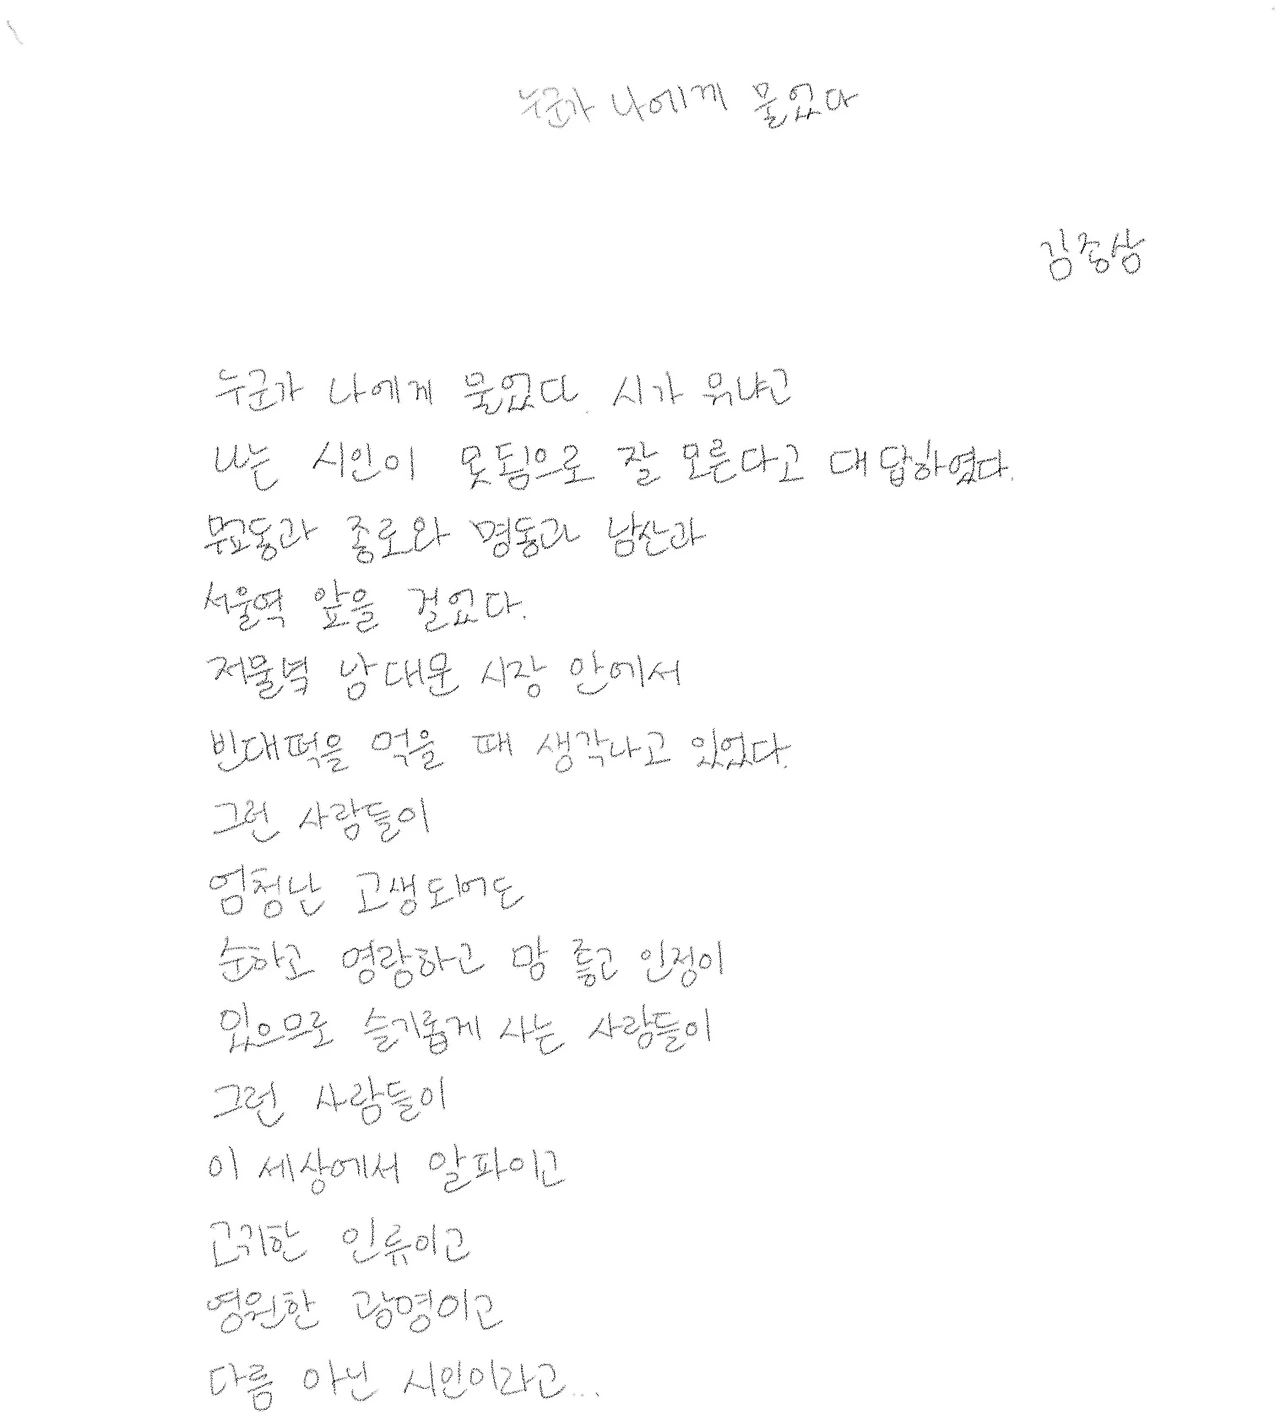 누군가 나에게 물었다
김종삼
누군가 나에게 물었다. 시가 뭐냐고
나는 시인이 못됨으로 잘 모른다고 대답하였다.
무교동과 종로와 명동과 남산과
서울역 앞을 걸었다.
저물녘 남대문 시장 안에서
빈대떡을 먹을 때 생각나고 있었다.
그런 사람들이
엄청난 고생되어도
순하고 명랑하고 맘 좋고 인정이
있으므로 슬기롭게 사는 사람들이
그런 사람들이
이 세상에서 알파이고
고귀한 인류이고
영원한 광명이고
다름 아닌 시인이라고...